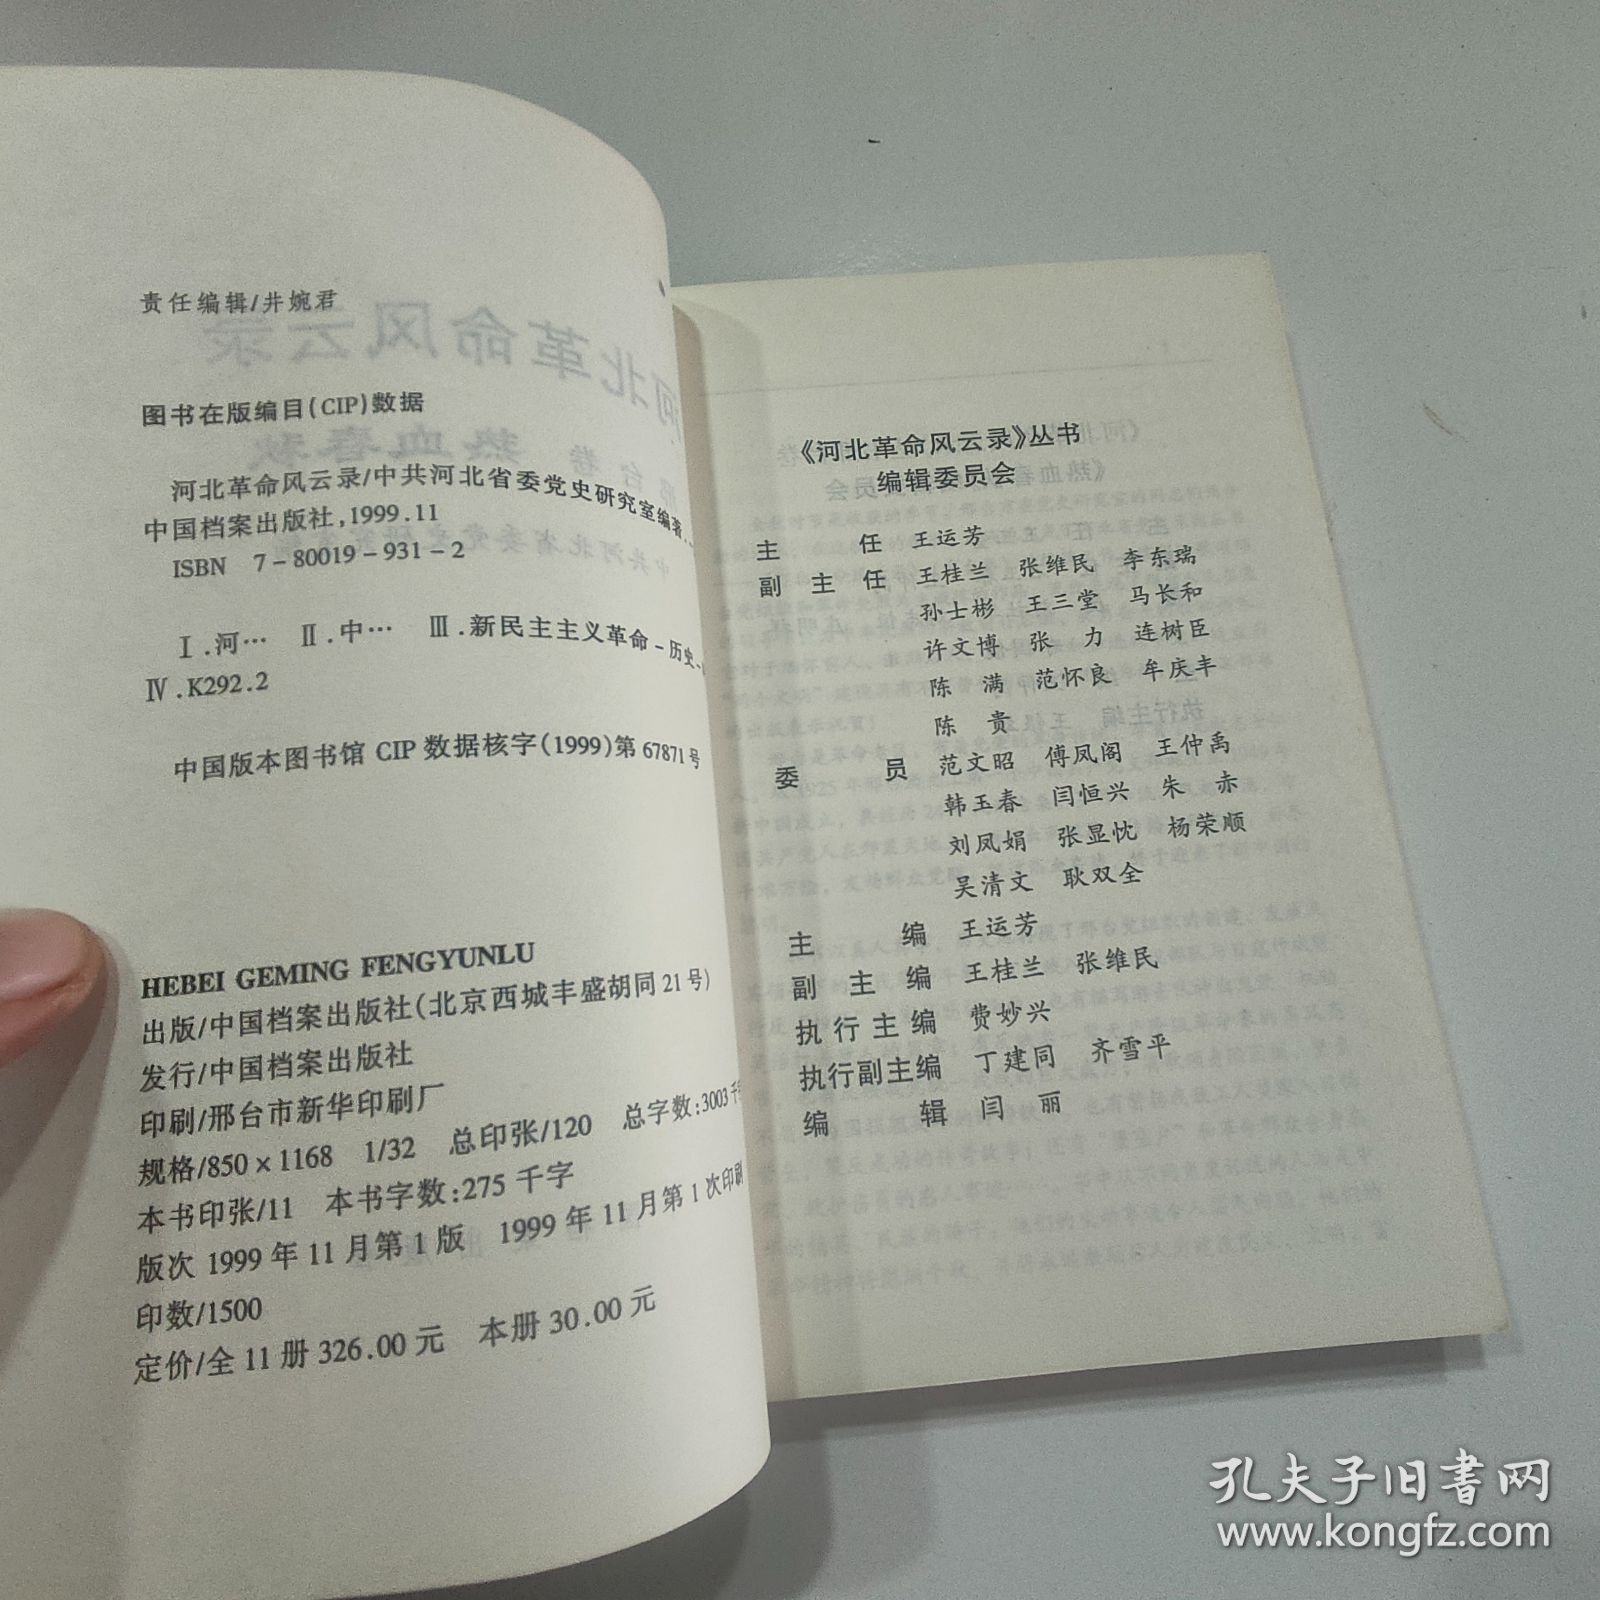 责任编辑/井婉君
图书在版编目(CIP)数据
河北革命风云录/中共河北省委党史研究室编著.-
中国档案出版社,1999.11
ISBN 7-80019-931-2
Ⅰ.河… Ⅱ.中… Ⅲ.新民主主义革命-历史-
Ⅳ.K292.2
中国版本图书馆 CIP 数据核字(1999)第 67871 号
HEBEI GEMING FENGYUNLU
出版/中国档案出版社(北京西城丰盛胡同21号)
发行/中国档案出版社
印刷/邢台市新华印刷厂
规格/850×1168 1/32 总印张/120 总字数:3003千
本书印张/11 本书字数:275 千字
版次 1999 年 11 月第 1 版 1999 年 11 月第 1 次印刷
印数/1500
定价/全 11 册 326.00 元 本册 30.00 元
《河北革命风云录》丛书
编辑委员会
主任 王运芳
副主任 王桂兰 张维民 李东瑞
孙士彬 王三堂 马长和
许文博 张力 连树臣
陈满 范怀良 牟庆丰
陈贵
委员 范文昭 傅凤阁 王仲禹
韩玉春 闫恒兴 朱赤
刘凤娟 张显忱 杨荣顺
吴清文 耿双全
主编 王运芳
副主编 王桂兰 张维民
执行主编 费妙兴
执行副主编 丁建同 齐雪平
编辑 闫丽
孔夫子旧书网
www.kongfz.com